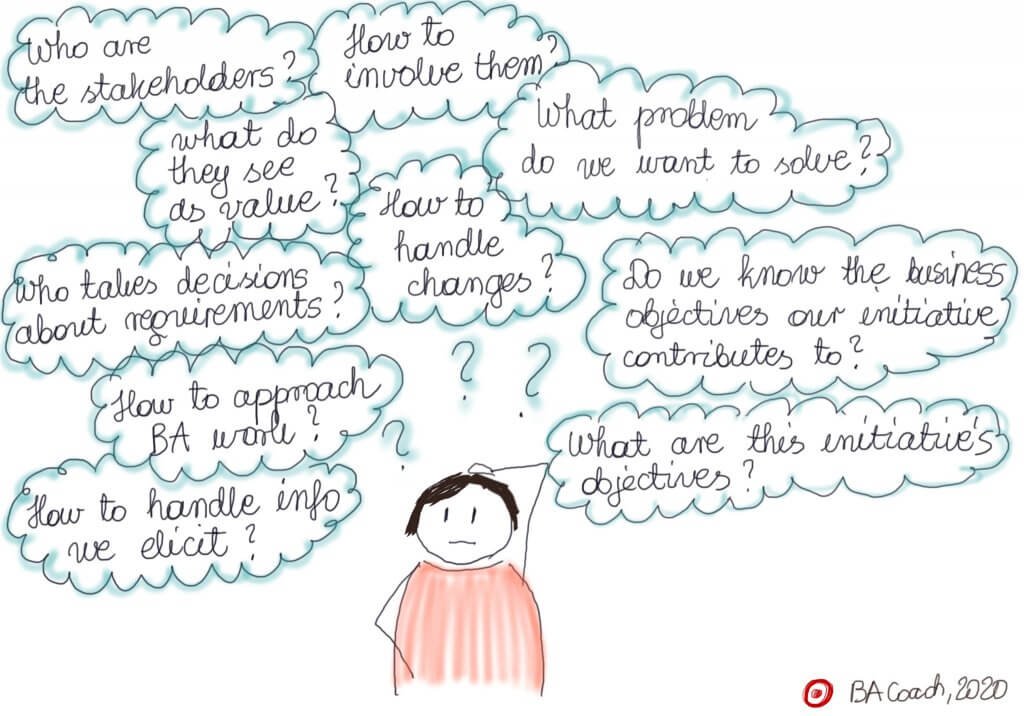 Who are
the stakeholders?
How to
involve them?
what do
they see
as value?
What problem
do we want to solve?
How to
handle
changes?
Who takes decisions
about requirements?
Do we know the business
objectives our initiative
contributes to?
How to approach
BA work?
What are this initiative's
objectives?
How to handle info
we elicit?
? ?
?
BA Coach, 2020